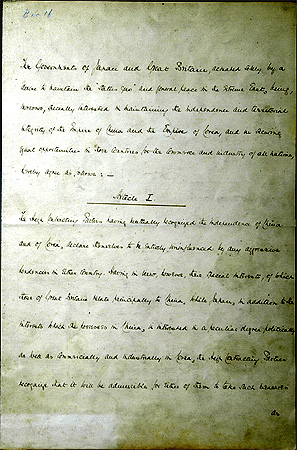 The Governments of Japan and Great Britain, actuated solely by a
desire to maintain the status quo and general peace in the Extreme East, being,
moreover, specially interested in maintaining the independence and territorial
integrity of the Empire of China and the Empire of Corea, and in securing
equal opportunities in those Countries for the commerce and industry of all nations,
hereby agree as follows: —
Article I.
The High Contracting Parties having mutually recognized the independence of China
and of Corea, declare themselves to be entirely uninfluenced by any aggressive
tendencies in either Country. Having in view, however, their special interests, of which
those of Great Britain relate principally to China, while Japan, in addition to the
interests which she possesses in China, is interested in a peculiar degree politically
as well as commercially and industrially in Corea, the High Contracting Parties
recognize that it will be admissible for either of them to take such measures
as